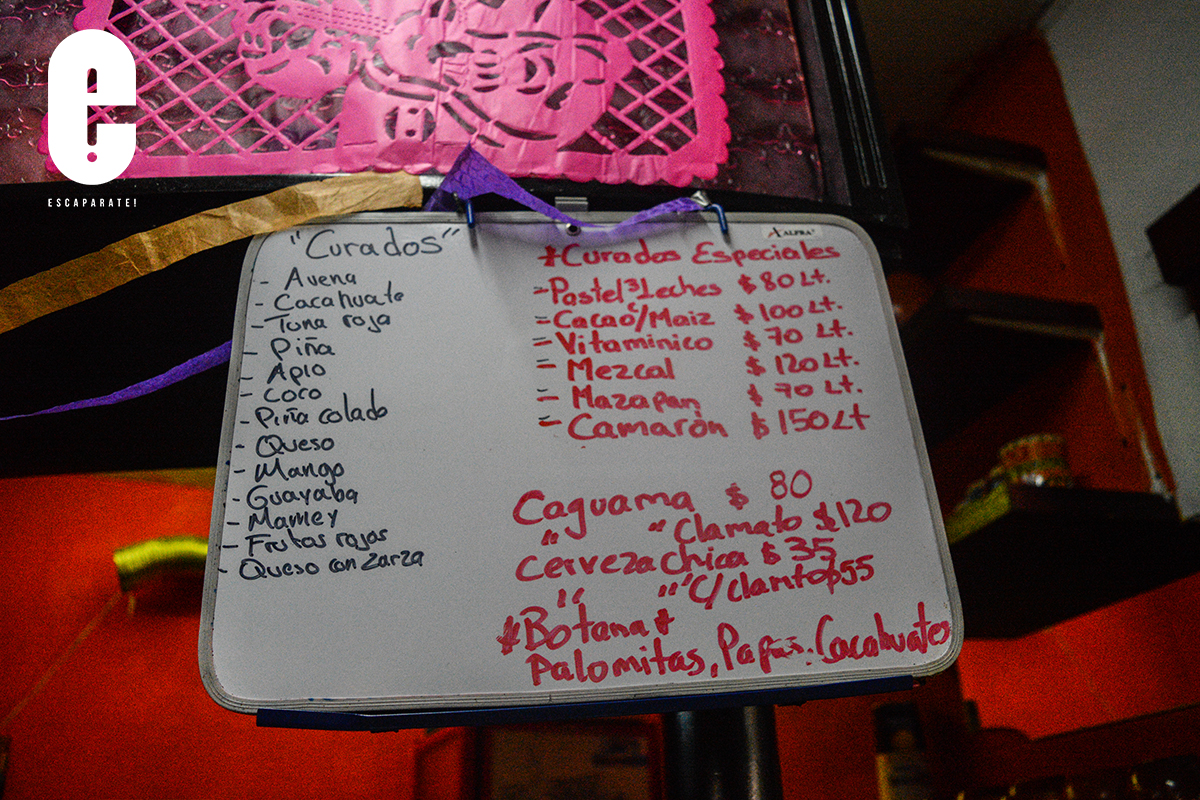 e
ESCAPARATE!
"Curados"
- Avena
- Cacahuate
- Tuna roja
- Piña
- Apio
- Coco
- Piña colada
- Queso
- Mango
- Guayaba
- Mamey
- Frutos rojos
- Queso con zarza
ALFRA
*Curados Especiales
- Pastel 3 Leches $80 Lt.
- Cacao c/Maiz $100 Lt.
- Vitaminico $70 Lt.
- Mezcal $120 Lt.
- Mazapan $70 Lt.
- Camarón $150 Lt
Caguama $ 80
" " Clamato $120
Cerveza chica $35
" " "C/clamto $55
*Botana*
Palomitas, Papas, Cacahuates